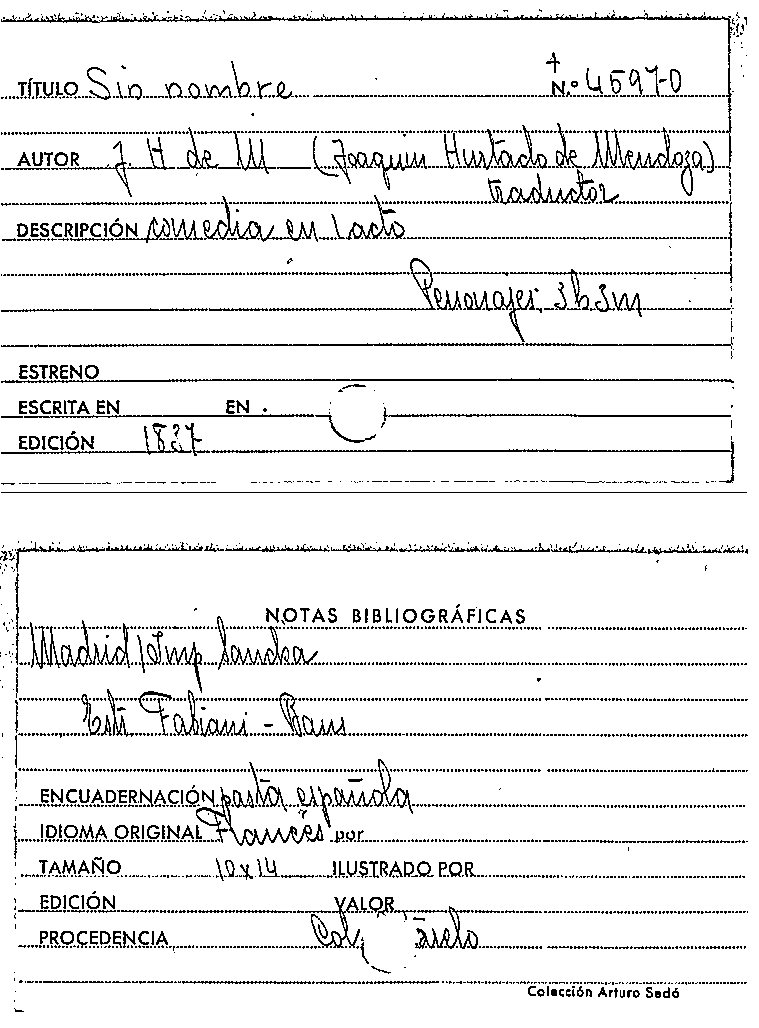 TÍTULO Sin nombre N.º 4597-0
AUTOR J. H de M (Joaquin Hurtado de Mendoza)
traductor
DESCRIPCIÓN comedia en 1 acto
Personajes. 3h 3m
ESTRENO
ESCRITA EN EN
EDICIÓN 1827
NOTAS BIBLIOGRÁFICAS
Madrid / Imp Sancha
Fabiani -
ENCUADERNACIÓN pasta española
IDIOMA ORIGINAL Francés por
TAMAÑO 10x14 ILUSTRADO POR
EDICIÓN VALOR
PROCEDENCIA Col.
Colección Arturo Sedó